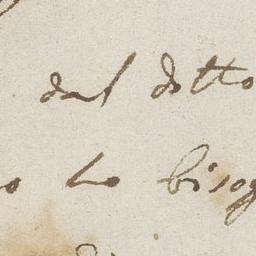 dal dotto
o ho bisog